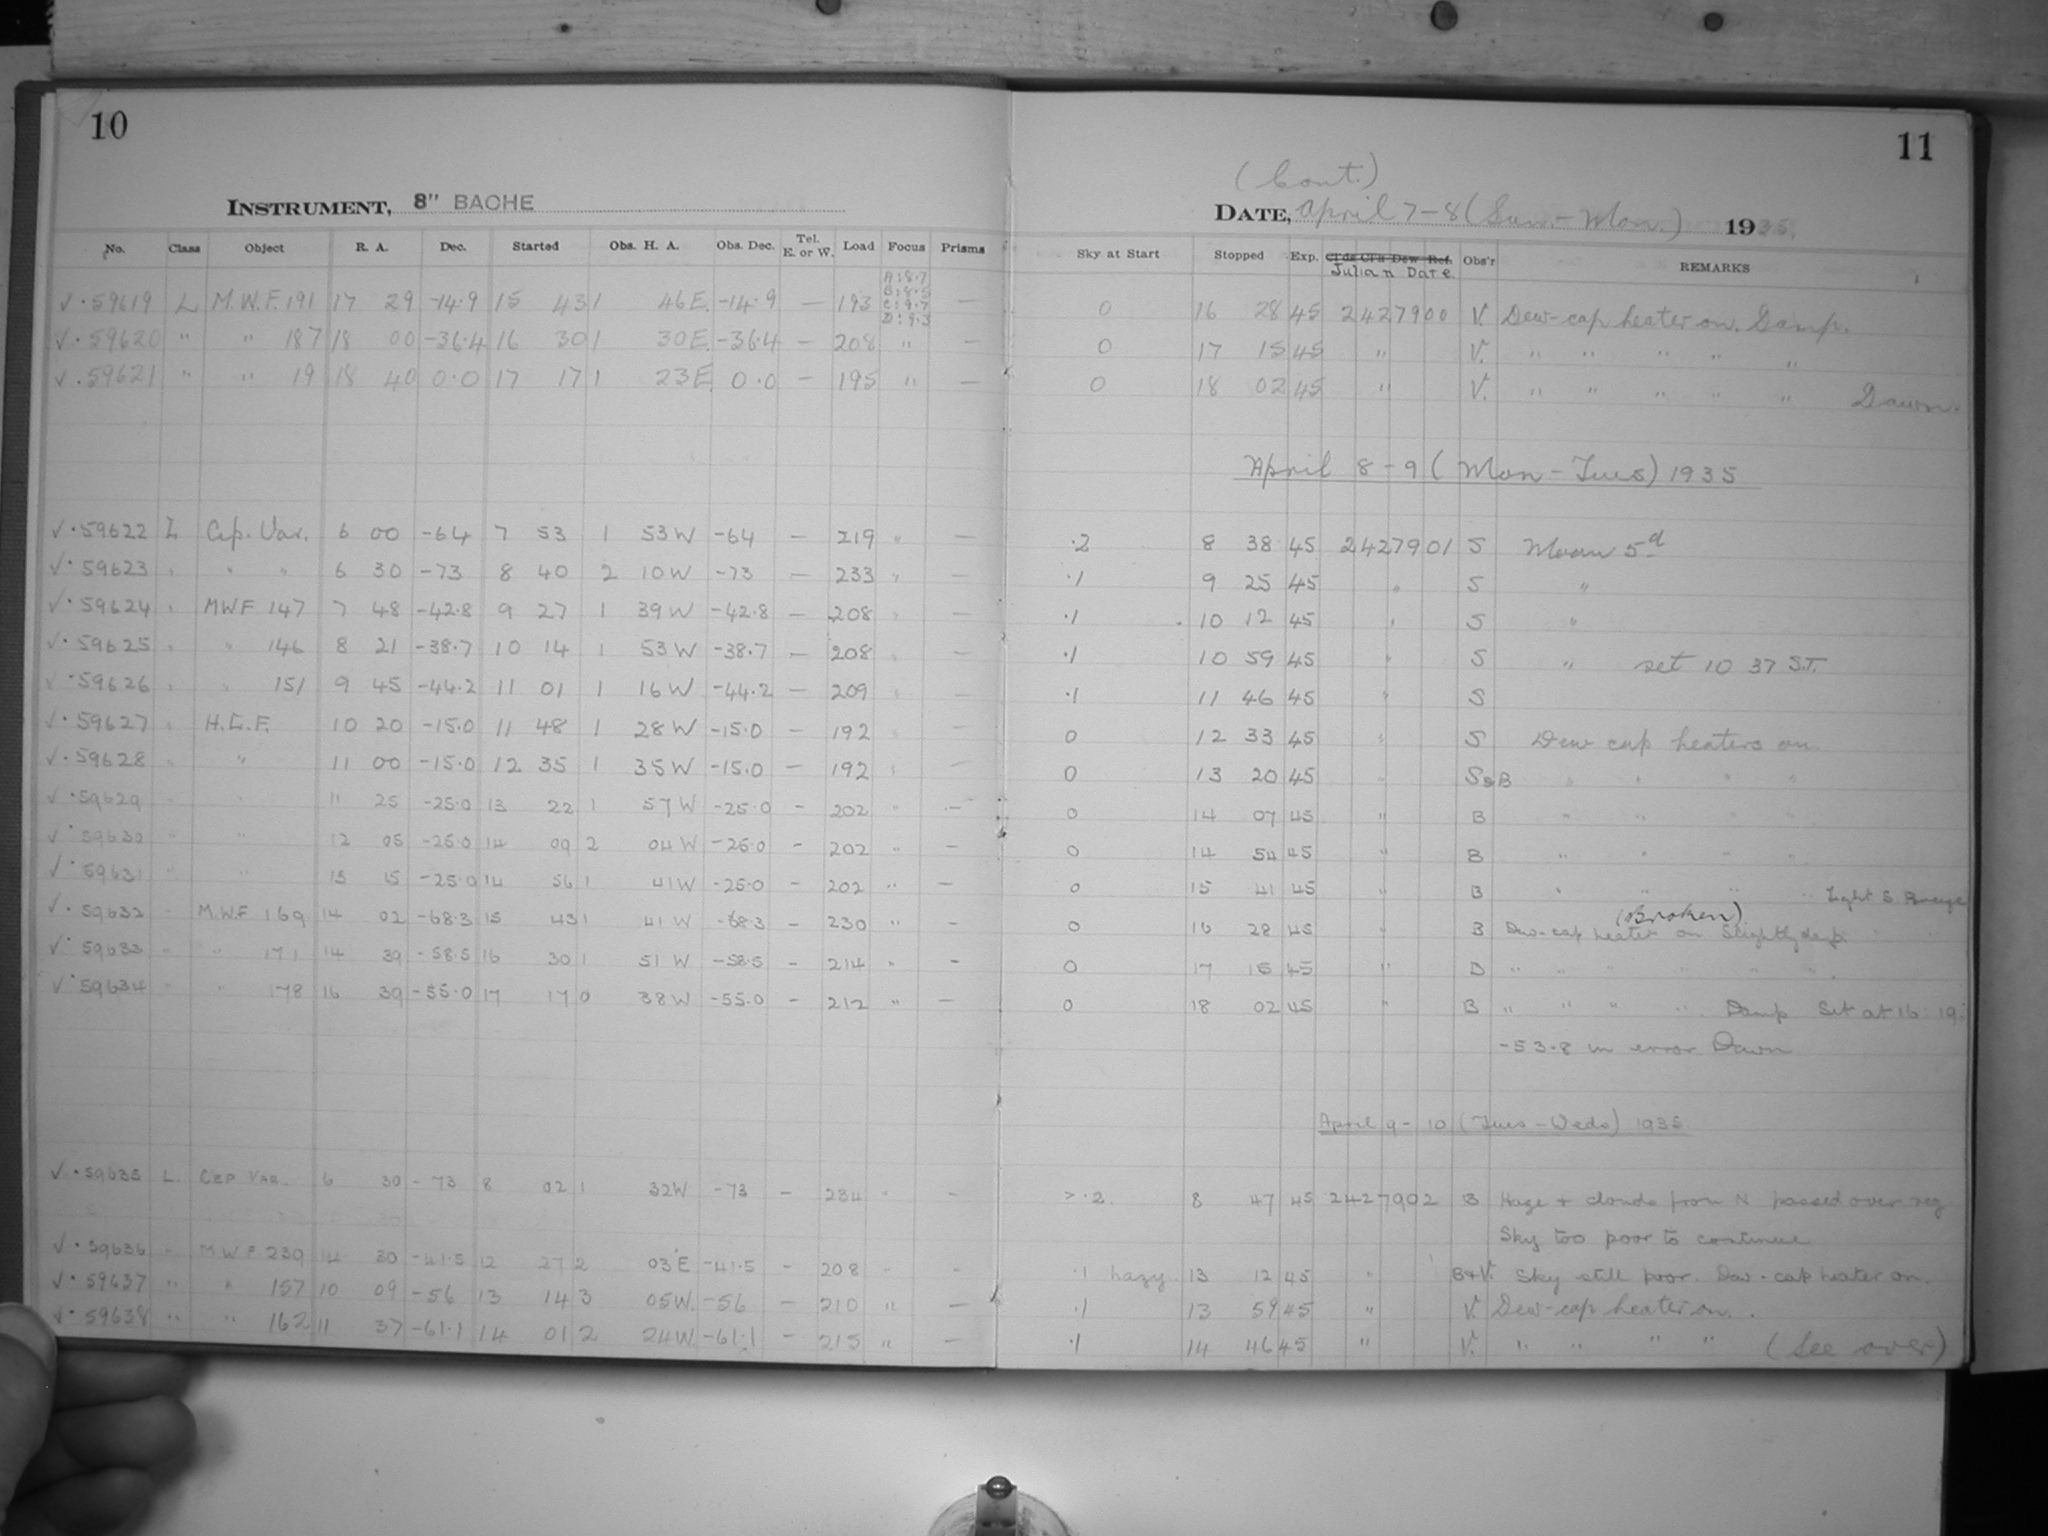 10
11
INSTRUMENT, 8" BACHE
(Cont.)
DATE, April 7-8 (Sun.-Mon.) 1935.
No. Class Object R. A. Dec. Started Obs. H. A. Obs. Dec. Tel. E. or W. Load Focus Prisms Sky at Start Stopped Exp. Julian Date Obs'r REMARKS
A:8.7
B:8.5
C:9.7
D:9.3
√ · 59619 L M.W.F. 191 17 29 -14.9 15 43 1 46 E. -14.9 — 193 — 0 16 28 45 2427900 V. Dew-cap heater on. Damp.
√ · 59620 " " 187 18 00 -36.4 16 30 1 30 E. -36.4 — 208 " — 0 17 15 45 " V. " " " " "
√ · 59621 " " 19 18 40 0.0 17 17 1 23 E 0.0 — 195 " — 0 18 02 45 " V. " " " " " Dawn.
April 8-9 (Mon-Tues) 1935
√ · 59622 L Cep. Var. 6 00 -64 7 53 1 53 W -64 — 219 " — .2 8 38 45 2427901 S Moon 5d
√ · 59623 " " " 6 30 -73 8 40 2 10 W -73 — 233 " — .1 9 25 45 " S "
√ · 59624 " MWF 147 7 48 -42.8 9 27 1 39 W -42.8 — 208 " — .1 10 12 45 " S "
√ · 59625 " " 146 8 21 -38.7 10 14 1 53 W -38.7 — 208 " — .1 10 59 45 " S " set 10 37 S.T.
√ · 59626 " " 151 9 45 -44.2 11 01 1 16 W -44.2 — 209 " — .1 11 46 45 " S
√ · 59627 " H.C.F. 10 20 -15.0 11 48 1 28 W -15.0 — 192 " — 0 12 33 45 " S Dew cap heaters on.
√ · 59628 " " 11 00 -15.0 12 35 1 35 W -15.0 — 192 " — 0 13 20 45 " S&B " " " "
√ · 59629 " " 11 25 -25.0 13 22 1 57 W -25.0 — 202 " — 0 14 07 45 " B " " " "
√ · 59630 " " 12 05 -25.0 14 09 2 04 W -25.0 — 202 " — 0 14 54 45 " B " " " "
√ · 59631 " " 13 15 -25.0 14 56 1 41 W -25.0 — 202 " — 0 15 41 45 " B " " " " Light S Breeze
(Broken)
√ · 59632 " M.W.F 169 14 02 -68.3 15 43 1 41 W -68.3 — 230 " — 0 16 28 45 " B Dew-cap heater on Slightly damp " "
√ · 59633 " " 171 14 39 -58.5 16 30 1 51 W -58.5 — 214 " — 0 17 15 45 " B " " " " " "
√ · 59634 " " 178 16 39 -55.0 17 17 0 38 W -55.0 — 212 " — 0 18 02 45 " B " " " " Damp Set at 16 19
-53.8 in error Dawn
April 9-10 (Tues-Weds) 1935
√ · 59635 L. CEP VAR. 6 30 -73 8 02 1 32 W -73 — 234 " — > .2. 8 47 45 2427902 B Haze + clouds from N passed over reg
Sky too poor to continue
√ · 59636 " M.W.F. 239 14 30 -41.5 12 27 2 03 E -41.5 — 208 " — .1 hazy 13 12 45 " B+V. Sky still poor. Dew-cap heater on.
√ · 59637 " " 157 10 09 -56 13 14 3 05 W. -56 — 210 " — .1 13 59 45 " V. Dew-cap heater on.
√ · 59638 " " 162 11 37 -61.1 14 01 2 24 W. -61.1 — 215 " — .1 14 46 45 " V. " " " " (See over)